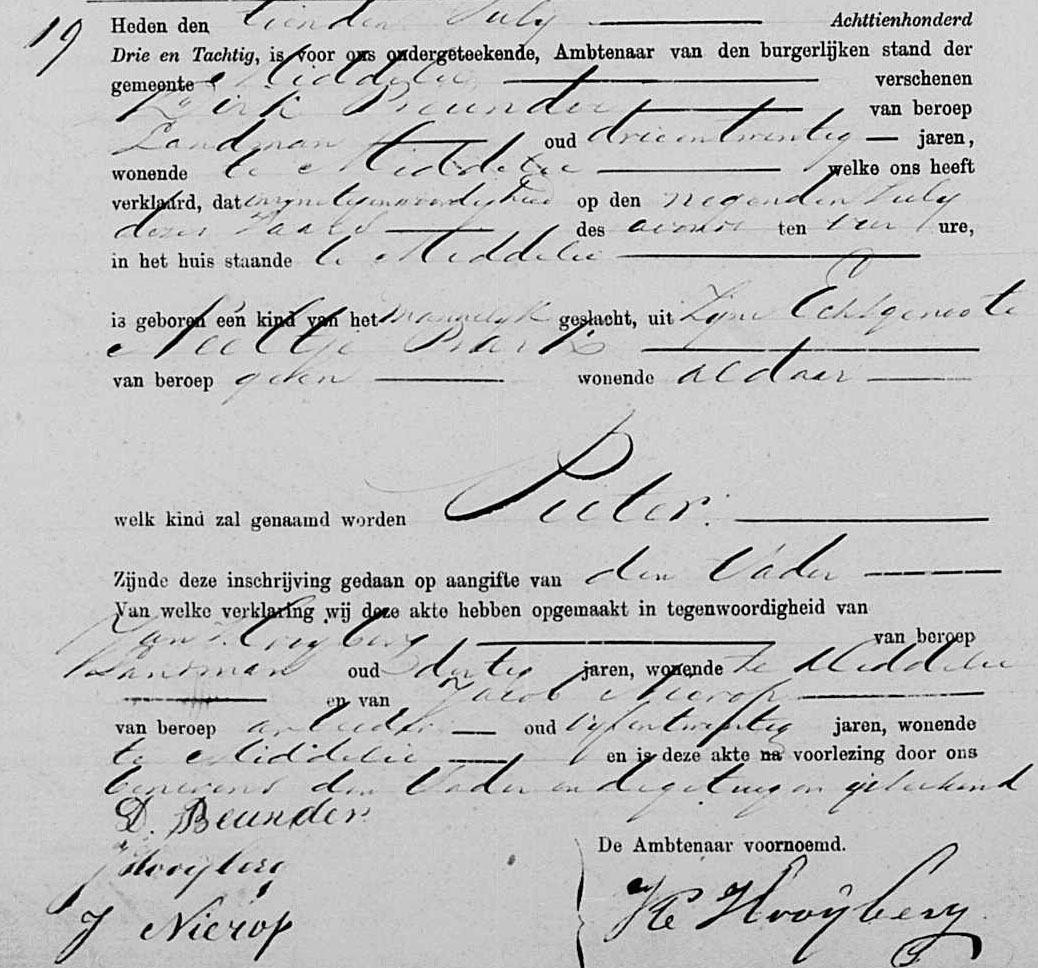 19 Heden den tienden July Achttienhonderd
Drie en Tachtig, is voor ons ondergeteekende, Ambtenaar van den burgerlijken stand der
gemeente Middelie verschenen
Dirk Beunder van beroep
Landman oud drieentwintig jaren,
wonende te Middelie welke ons heeft
verklaard, dat op den negenden July
dezes Jaars des avonds ten ure,
in het huis staande te Middelie
is geboren een kind van het mannelyk geslacht, uit Zyne Echtgenoote
Neeltje
van beroep geen wonende aldaar
welk kind zal genaamd worden Pieter.
Zijnde deze inschrijving gedaan op aangifte van den Vader
Van welke verklaring wij deze akte hebben opgemaakt in tegenwoordigheid van
Hooyberg van beroep
Landman oud dertig jaren, wonende te Middelie
en van Jacob Nierop
van beroep arbeider oud vyfentwintig jaren, wonende
te Middelie en is deze akte na voorlezing door ons
benevens den Vader en de getuigen geteekend
D. Beunder
J Hooyberg
De Ambtenaar voornoemd.
J Nierop
Hooyberg